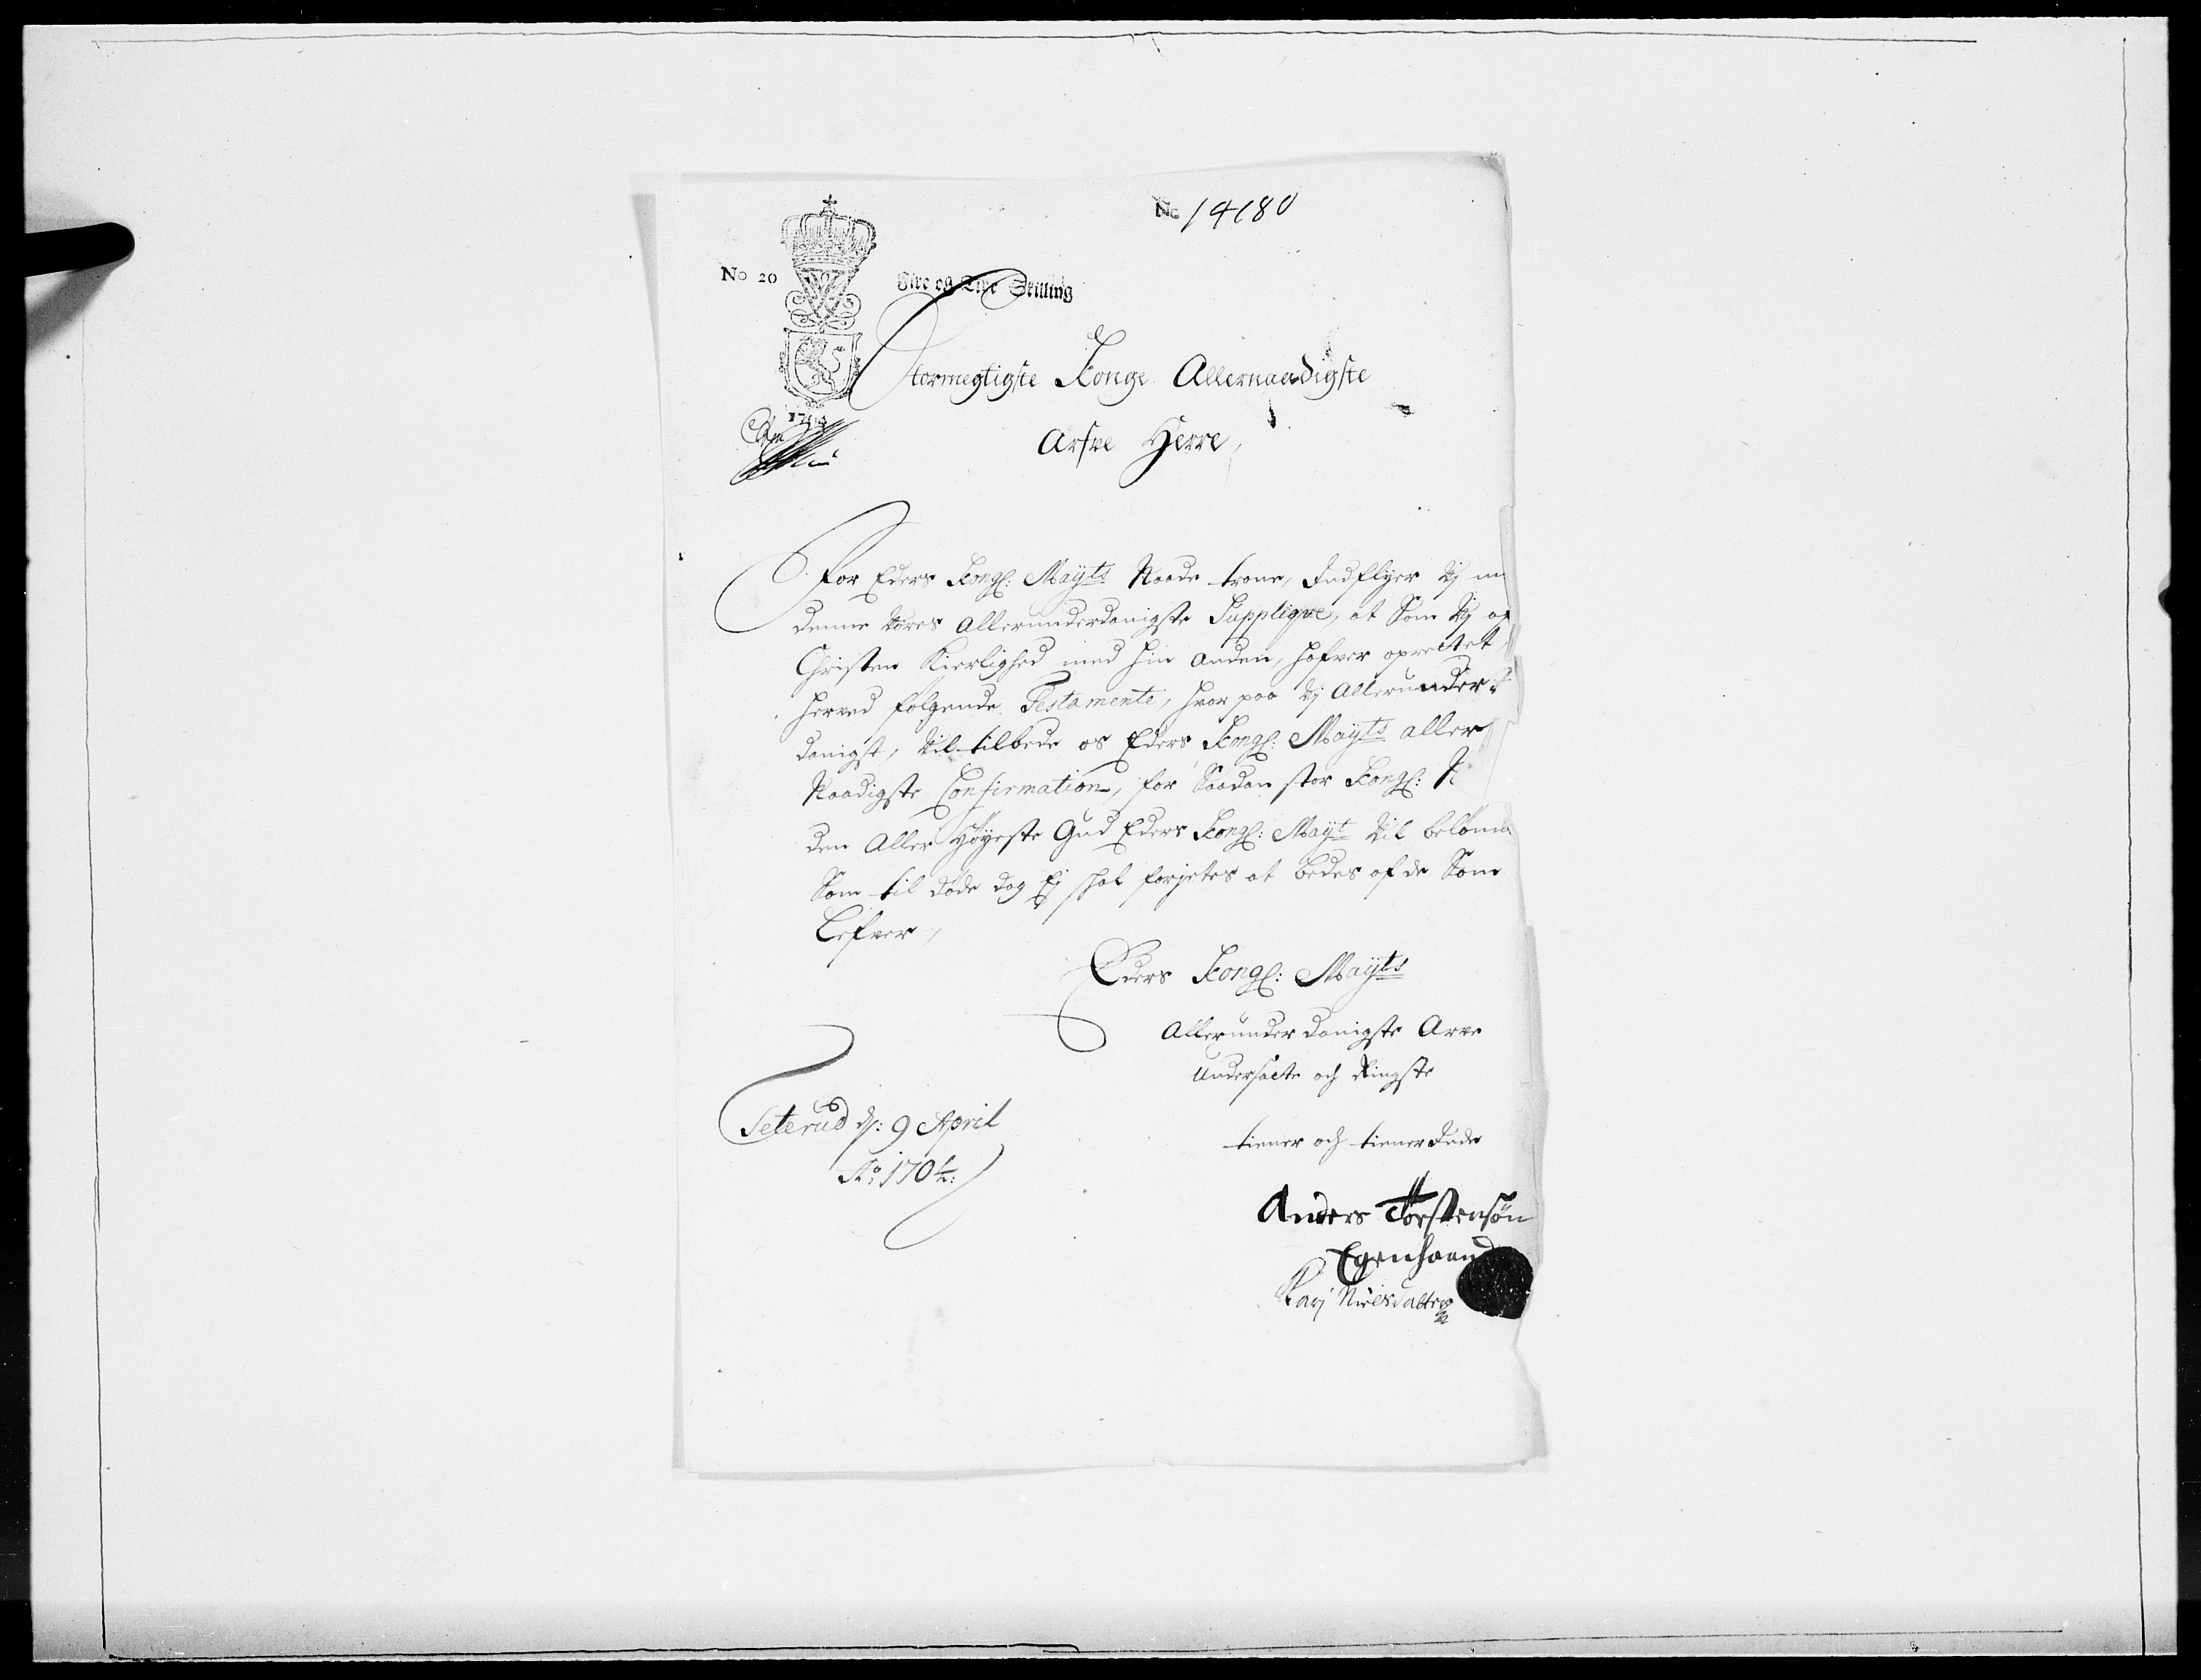 No 14180
No 20
Fire og Tive Skilling
Stormegtigste Konge Allernaadigste
Arfve Herre,
1704
For Eders Kongl: Mayts Naade trone, Indflyer Vj
denne Vores Allerunderdanigste Supplique, at Som Vj af
Christen Kierlighed med hin anden, hafver oprettet
herved følgende Testamente, hvor paa Vj Allerunder-
danigst, Vil tilbede os Eders Kongl: Mayts aller
Naadigste Confirmation, for Saadan stor Kongl: N
den Aller Høyeste Gud Eders Kongl: Mayt Vil belønne
Som til døde dag Ej skal forjetes at bedes af de Som
Lefver,
Eders Kongl: Mayts
Allerunderdanigste Arve
Undersaatte och Ringste
tiener och tienerinde
Seterud d: 9 April
Ao: 1704:
Anders Torstensøn
Egenhaand
Karj Nielsdatter